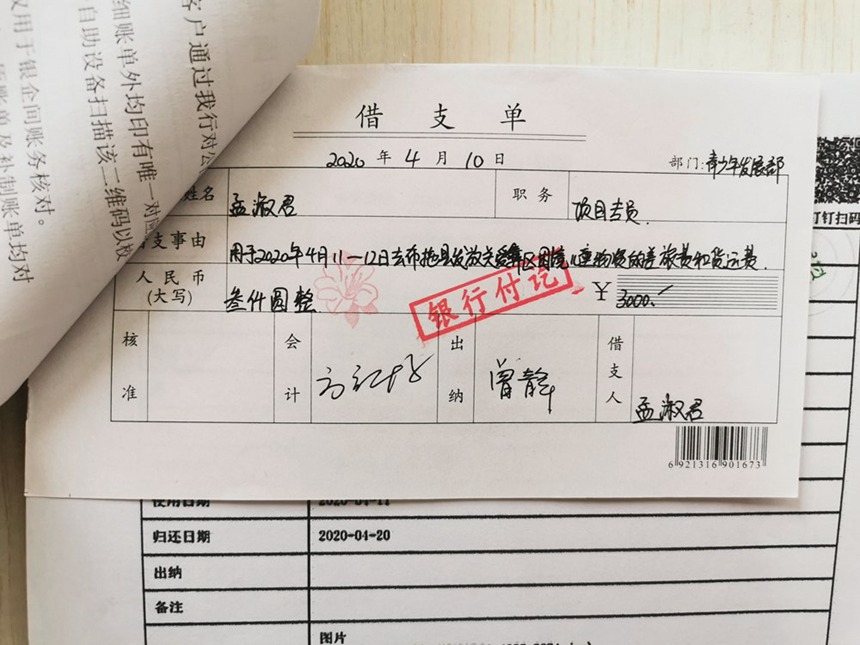 客户通过我行对公
细账单外均印有唯一对
自助设备扫描该二维码以校
仅用于银企间账务核对。
账单及补制账单均对
借支单
2020 年 4 月 10 日
部门:青少年发展部
姓名 孟淑君 职务 项目专员
支事由 用于2020年4月11-12日去布拖县发放
物资的差旅费和货运费.
人民币(大写) 叁仟圆整 ¥ 3000.
银行付讫
核准 会计 出纳 曾静 借支人 孟淑君
6 921316 901673
钉钉扫码
使用日期 2020-04-11
归还日期 2020-04-20
出纳
备注
图片